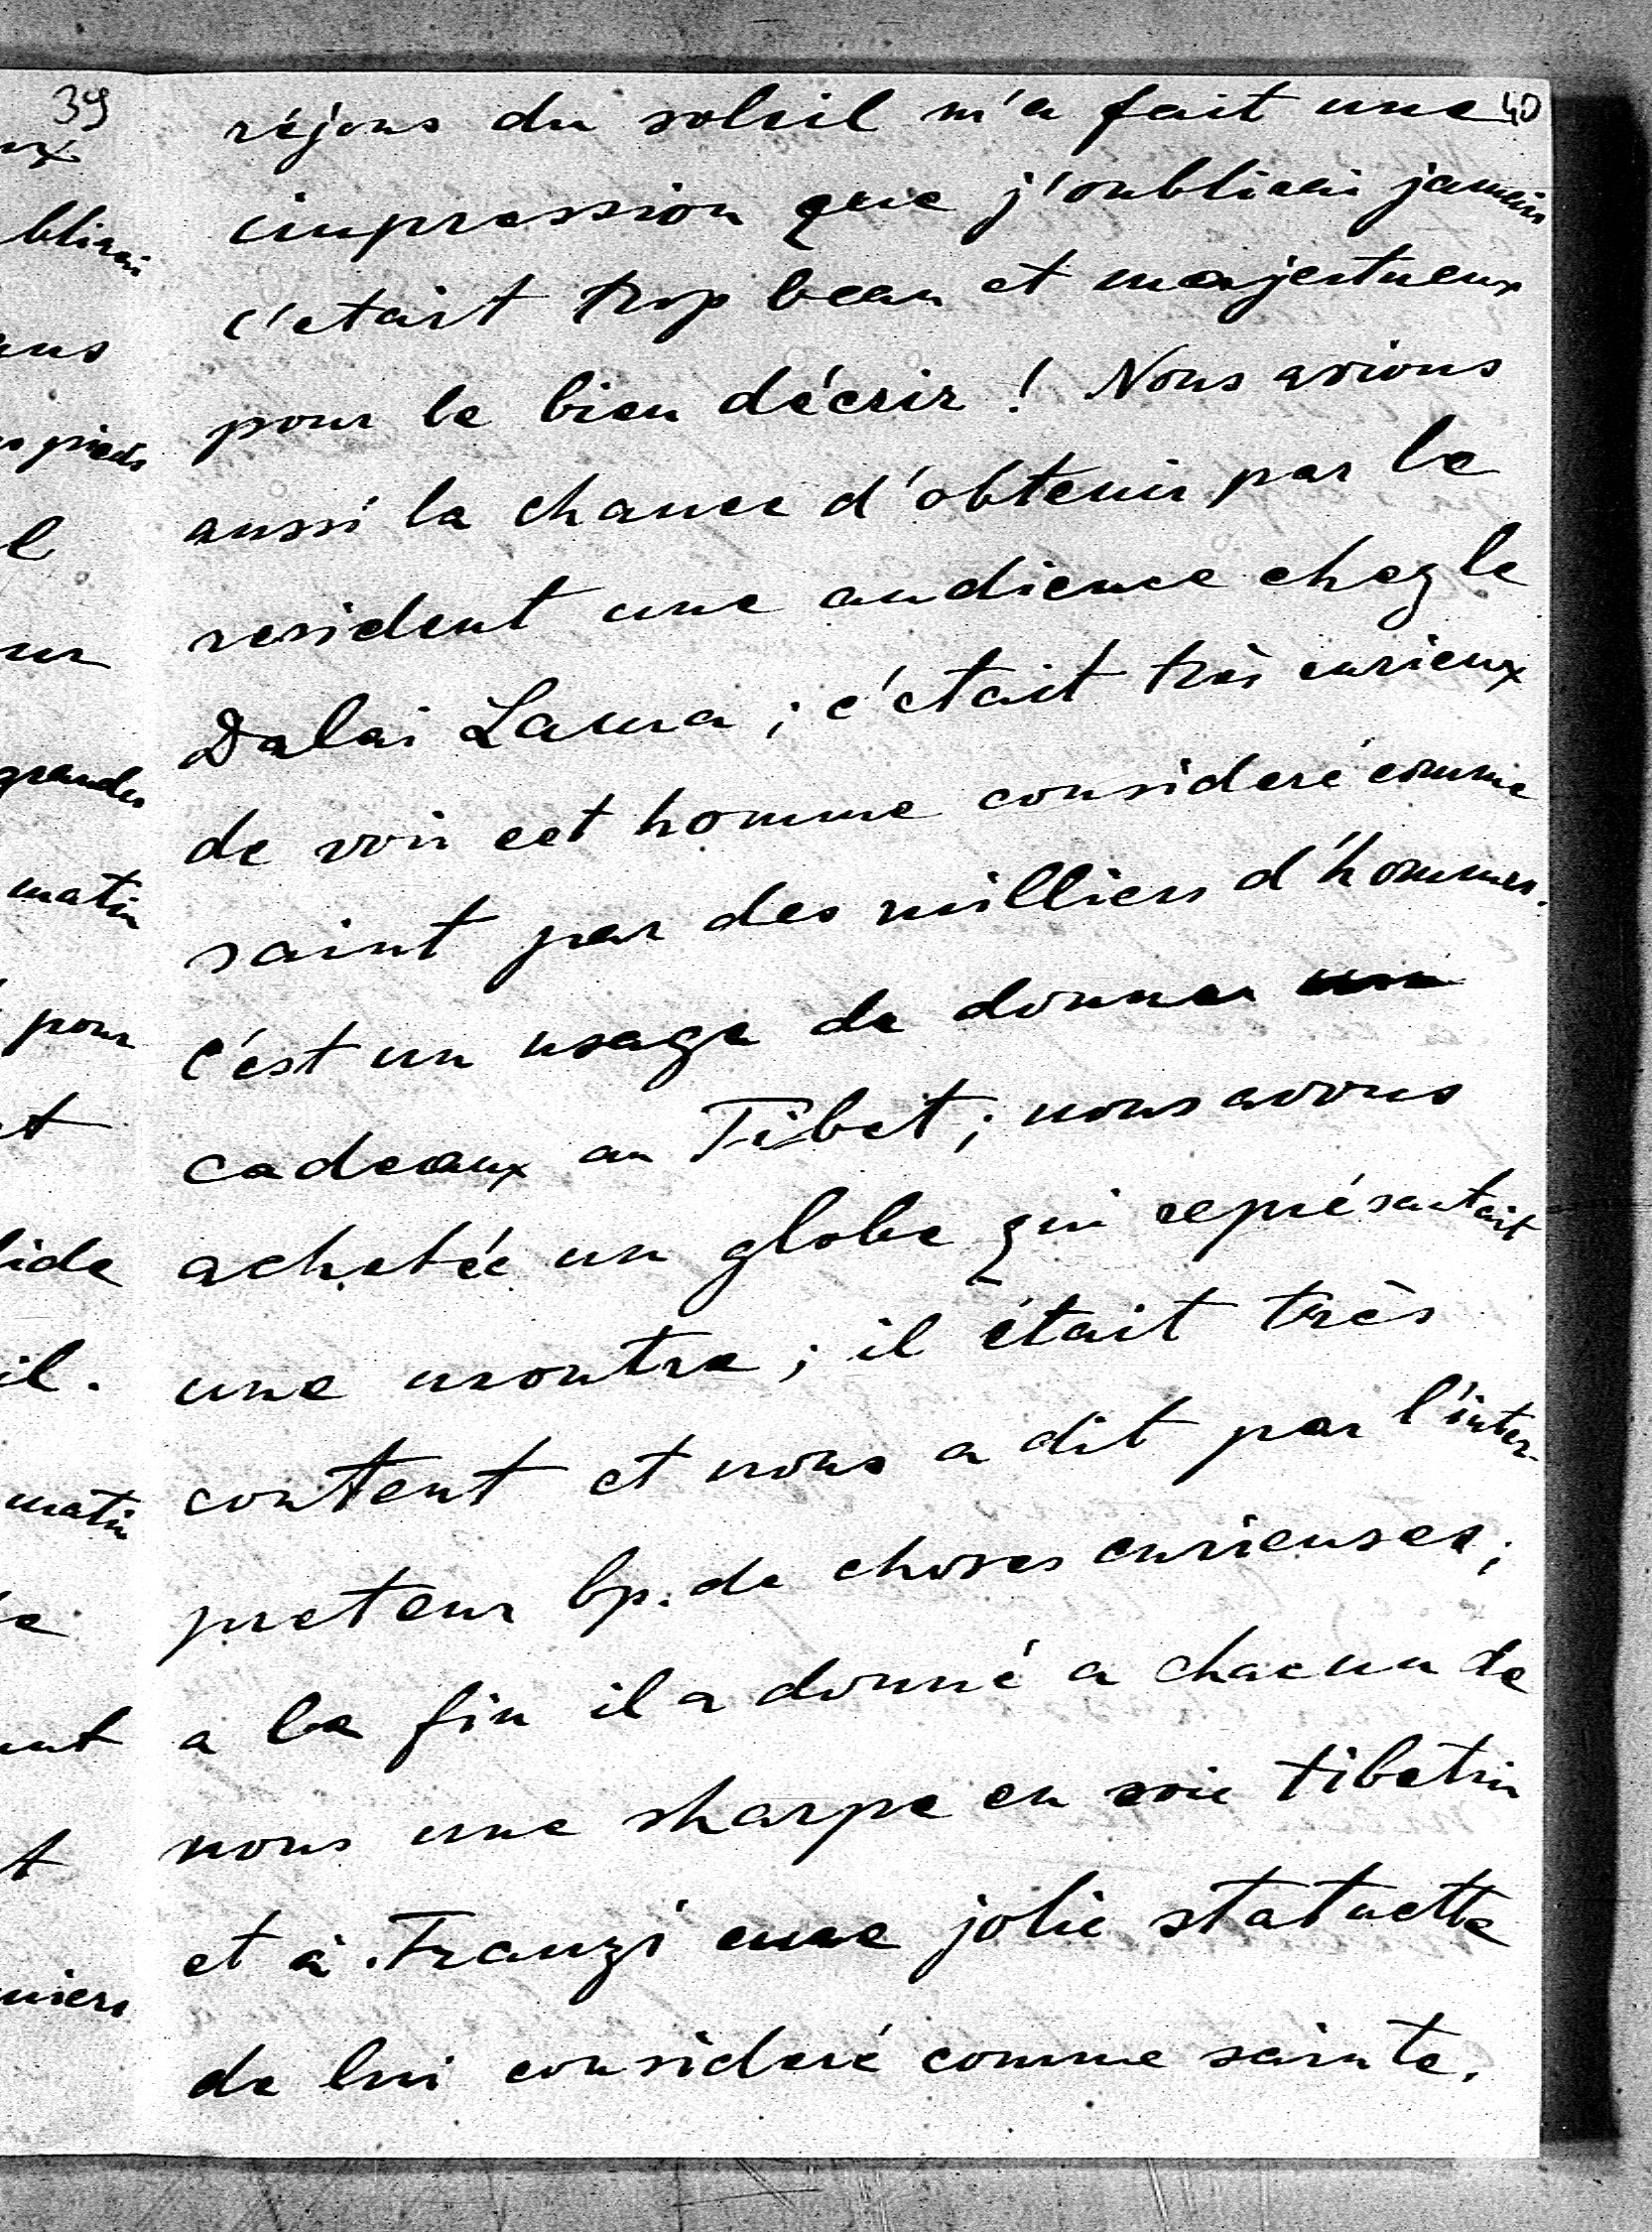 39
40
réjons du soleil m'a fait une
impression que j'oublirai jamais
c'etait trop beau et majestueux
pour le bien décrir ! Nous avions
aussi la chance d'obtenir par le
resident une audience chez le
Dalai Lama ; c'etait très curieux
de voir cet homme consideré comme
saint par des milliers d'hommes.
c'est un usage de donner
cadeaux au Tibet ; nous avons
achetée un globe qui représentait
une montre ; il était très
content et nous a dit par l'inter-
preteur bp. de choses curieuses ;
a la fin il a donné a chacun de
nous une sharpe en soie tibetin
et à Franzi une jolie statuette
de lui consideré comme sainte.
blirai
pieds
grandes
matin
pour
matin